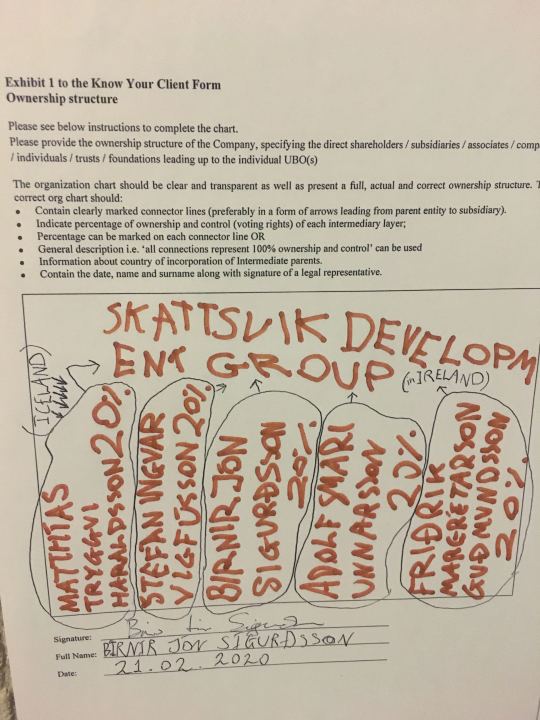 Exhibit 1 to the Know Your Client Form
Ownership structure
Please see below instructions to complete the chart.
Please provide the ownership structure of the Company, specifying the direct shareholders / subsidiaries / associates / comp
/ individuals / trusts / foundations leading up to the individual UBO(s)
The organization chart should be clear and transparent as well as present a full, actual and correct ownership structure. T
correct org chart should:
• Contain clearly marked connector lines (preferably in a form of arrows leading from parent entity to subsidiary).
• Indicate percentage of ownership and control (voting rights) of each intermediary layer;
• Percentage can be marked on each connector line OR
• General description i.e. ‘all connections represent 100% ownership and control’ can be used
• Information about country of incorporation of Intermediate parents.
• Contain the date, name and surname along with signature of a legal representative.
SKATTSVIK DEVELOPM
ENT GROUP (in IRELAND)
(ICELAND)
MATTHIAS
TRYGGVI
HARALDSSON 20%
STEFAN INGVAR
VIGFUSSON 20%
BIRNIR JON
SIGURDSSON
20%
ADOLF SMARI
UNNARSSON
20%
FRIDRIK
MARGRETARSON
GUDMUNDSSON
20%
Signature:
Full Name: BIRNIR JON SIGURDSSON
Date: 21.02.2020